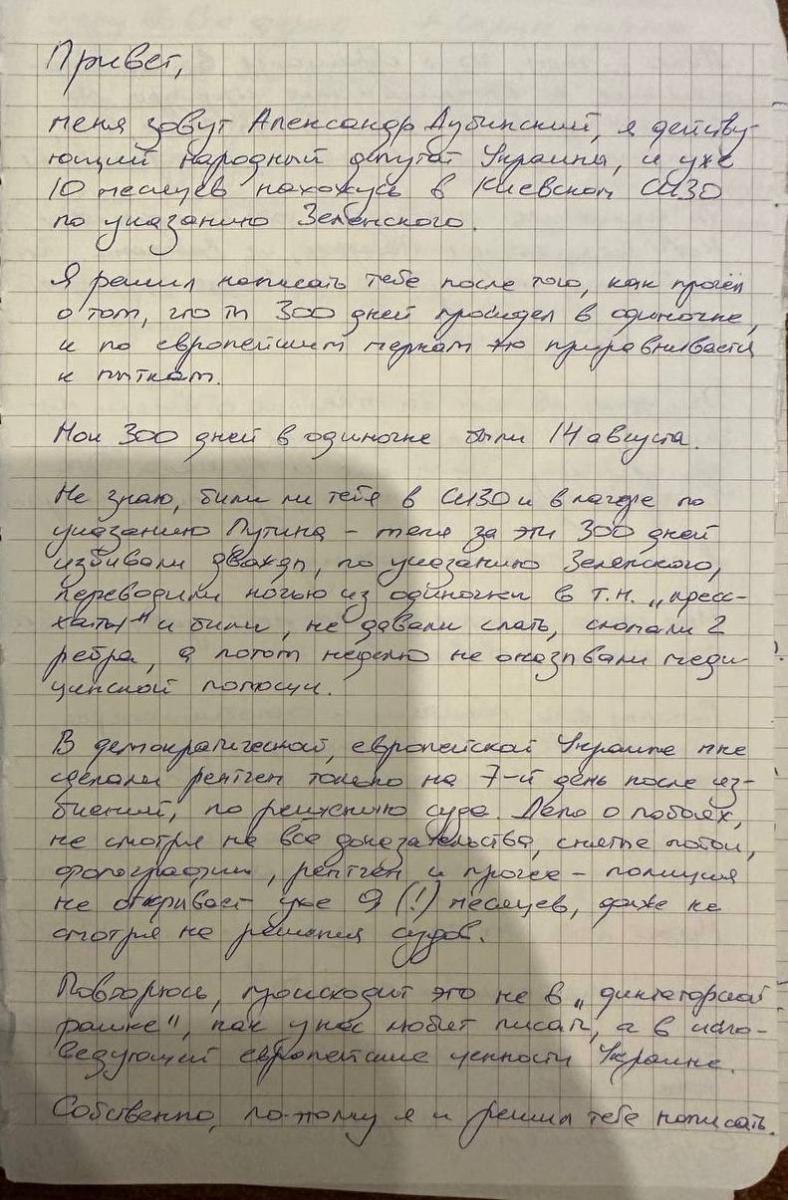 Привет,
меня зовут Александр Дубинский, я действу-
ющий народный депутат Украины, и уже
10 месяцев нахожусь в Киевском СИЗО
по указанию Зеленского.
Я решил написать тебе после того, как прочёл
о том, что ты 300 дней просидел в одиночке,
и по европейским меркам это приравнивается
к пыткам.
Мои 300 дней в одиночке были 14 августа.
Не знаю, били ли тебя в СИЗО и в лагере по
указанию Путина – меня за эти 300 дней
избивали дважды, по указанию Зеленского,
переводили ночью из одиночки в т.н. „пресс-
хаты" и били, не давали спать, сломали 2
ребра, а потом неделю не оказывали меди-
цинской помощи.
В демократической, европейской Украине мне
сделали рентген только на 7-й день после из-
биений, по решению суда. Дело о побоях,
не смотря на все доказательства, снятые побои,
фотографии, рентген и прочее – полиция
не открывает уже 9 (!) месяцев, даже не
смотря на решения судов.
Повторюсь, происходит это не в „диктаторской
рашке", как у нас любят писать, а в испо-
ведующей европейские ценности Украине.
Собственно, по-тому я и решил тебе написать.